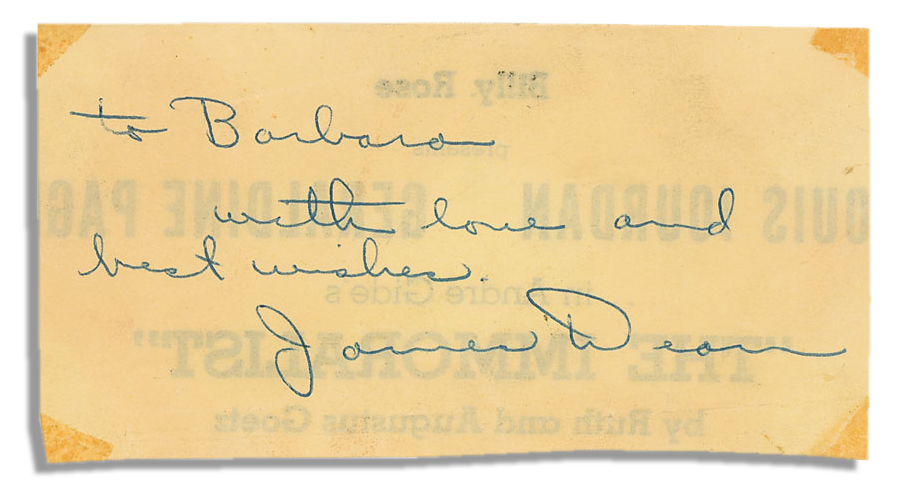 Billy Rose
to Barbara
presents
LOUIS JOURDAN GERALDINE PAG
with love and
best wishes.
in Andre Gide's
James Dean
"THE IMMORALIST"
by Ruth and Augustus Goetz